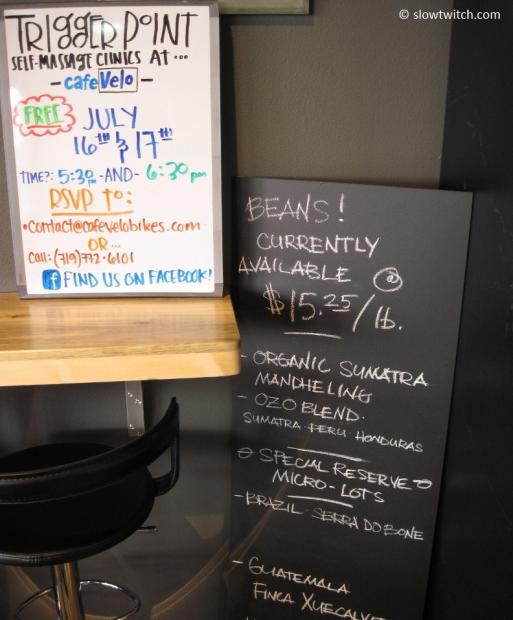 © slowtwitch.com
TRIGGER POINT
SELF-MASSAGE CLINICS AT...
- cafeVelo -
FREE
JULY
16th & 17th
TIME?: 5:30pm -AND- 6:30pm
RSVP TO:
•Contact@cafevelobikes.com
OR...
Call: (719)772-6101
f FIND US ON FACEBOOK!
BEANS!
CURRENTLY
AVAILABLE @
$15.25/lb.
- ORGANIC SUMATRA
MANDHELING
- OZO BLEND.
SUMATRA PERU HONDURAS
SPECIAL RESERVE
MICRO-LOTS
- BRAZIL SERRA DO BONE
- GUATEMALA
FINCA